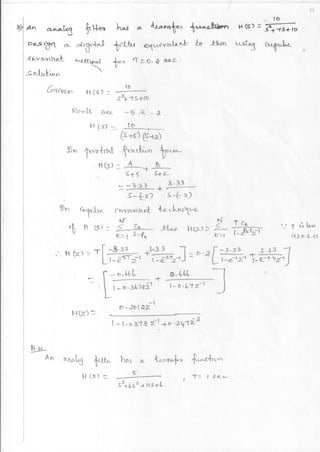 11
3) An analog filter has a transfer function H(s) = 10 / s²+7s+10
Design a digital filter equivalent to this using impulse
invariant method for T=0.2 sec.
Solution
Given H(s) = 10 / s²+7s+10
Roots are -5 & -2.
H(s) = 10 / (s+5)(s+2)
In partial fraction form
H(s) = A / s+5 + B / s+2
= -3.33 / s-(-5) + 3.33 / s-(-2)
In impulse invariant technique
if H(s) = N Σ k=1 Ck / s-Pk then H(z) = N Σ k=1 T Ck / 1-e^PkT z^-1 ∵ T is less
∴ H(z) = T [ -3.33 / 1-e^-5T z^-1 + 3.33 / 1-e^-2T z^-1 ] = 0.2 [ -3.33 / 1-e^-1 z^-1 + 3.33 / 1-e^-0.4 z^-1 ]
= [ -0.666 / 1-0.3678z^-1 + 0.666 / 1-0.67z^-1 ]
H(z) = 0.2012z^-1 / 1-1.0378z^-1+0.247z^-2
H.W
An analog filter has a transfer function
H(s) = 5 / s³+6s²+11s+6 , T= 1 sec